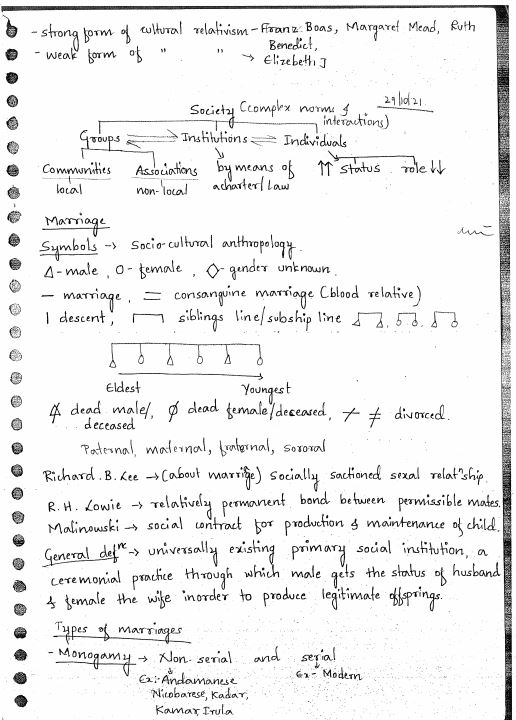 - strong form of cultural relativism - Franz Boas, Margaret Mead, Ruth
Benedict,
- weak form of " " → Elizebeth J
29/10/21
Society (complex norms &
interactions)
Groups Institutions Individuals
Communities Associations by means of ↑↑ status role ↓↓
local non-local acharter/Law
Marriage
Symbols → Socio-cultural anthropology.
Δ - male, O - female, ◇ - gender unknown.
— marriage, = consanguine marriage (blood relative)
| descent, siblings line/subship line
Eldest Youngest
dead male/, ø dead female/deceased, ≠ divorced.
deceased
Paternal, maternal, fraternal, sororal
Richard. B. Lee → (about marrige) socially sactioned sexal relatnship.
R. H. Lowie → relatively permanent bond between permissible mates.
Malinowski → social contract for production & maintenance of child.
General defnc → universally existing primary social institution, a
ceremonial practice through which male gets the status of husband
& female the wife inorder to produce legitimate offsprings.
Types of marriages
- Monogamy → Non serial and serial
Ex:- Andamanese Ex- Modern
Nicobarese, Kadar,
Kamar, Irula